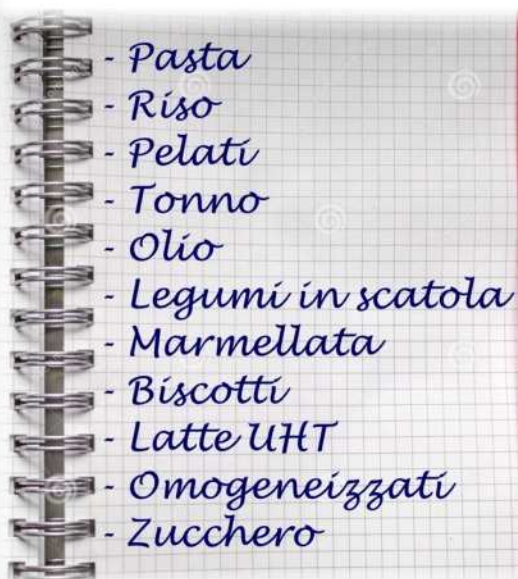 - Pasta
- Riso
- Pelati
- Tonno
- Olio
- Legumi in scatola
- Marmellata
- Biscotti
- Latte UHT
- Omogeneizzati
- Zucchero